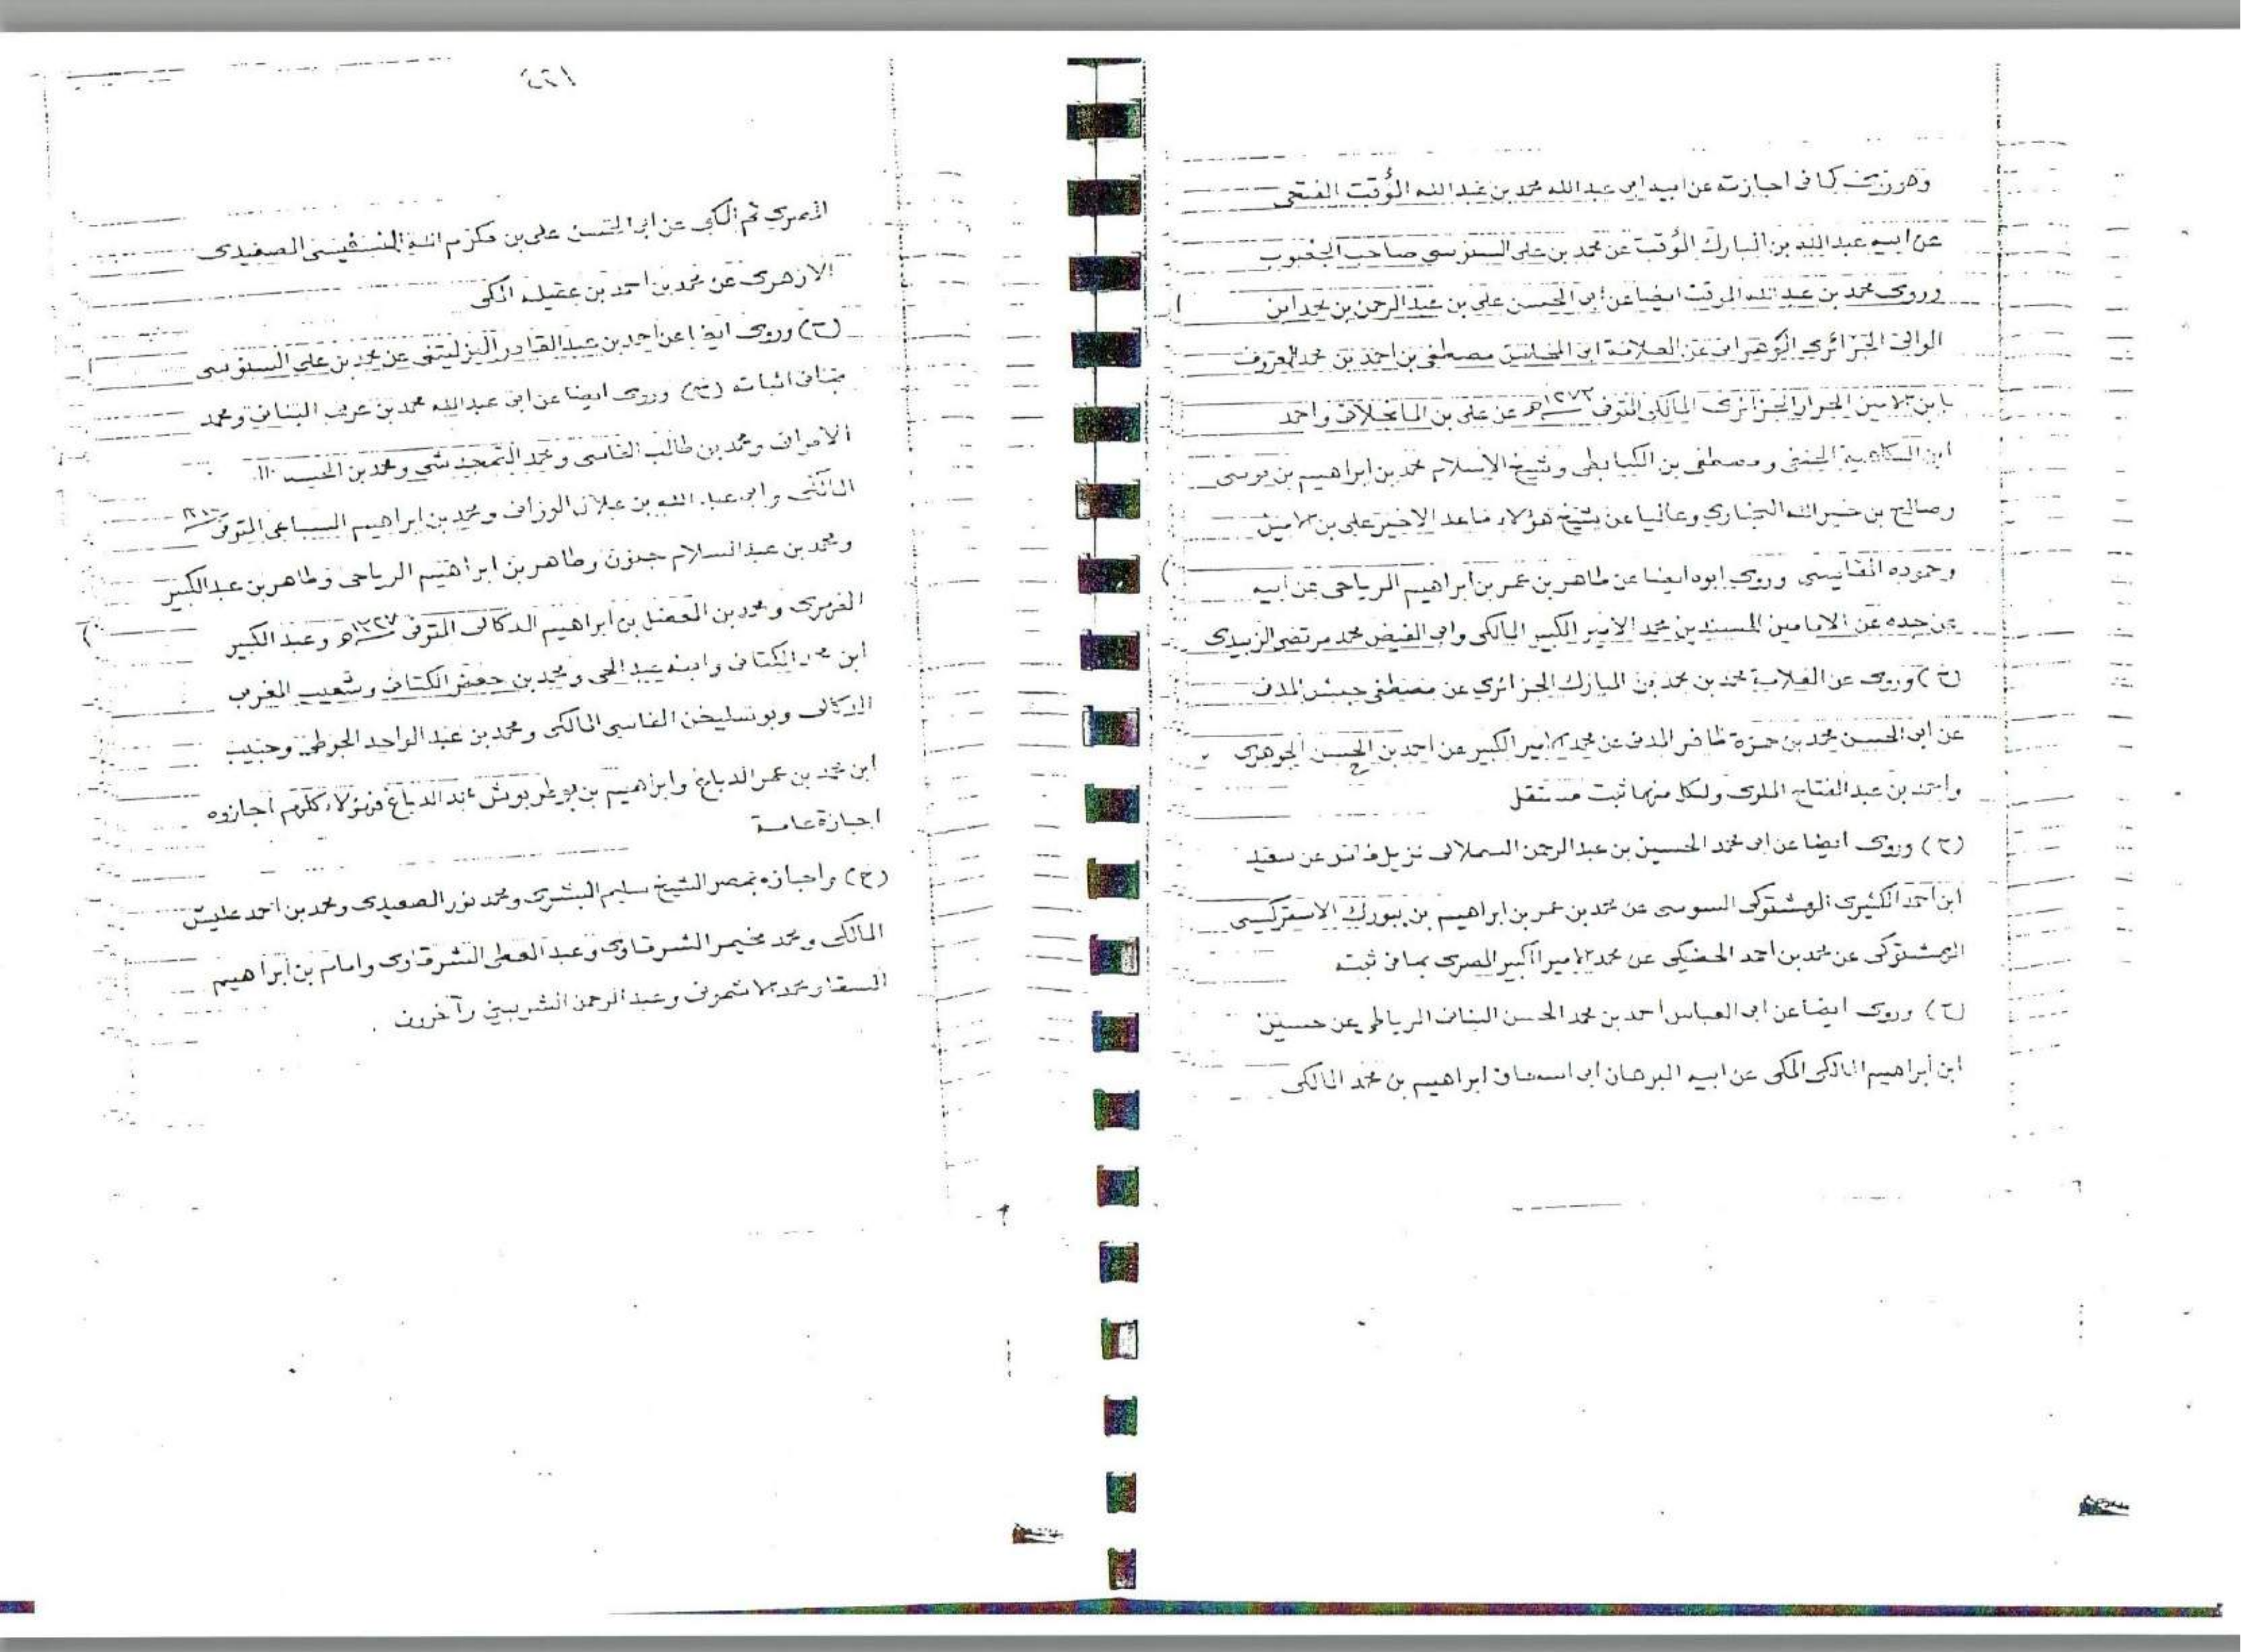 وهو يروى كما فى اجازته عن ابيه ابى عبدالله محمد بن عبدالله المؤقت الفتحى
عن ابيه عبدالله بن المبارك المؤقت عن محمد بن على السنوسي صاحب الجغبوب
وروى محمد بن عبدالله المؤقت ايضا عن ابى الحسن على بن عبد الرحمن بن محمد ابن
الوالى الجزائرى الوهرانى عن العلامة ابى المحاسن مصطفى بن احمد بن محمد المعروف
بابن الامين الحرار الجزائرى المالكى المتوفى ١٢٧٣هـ عن على بن المانجلاتى واحمد
ابن الكاهية الحنفى ومصطفى بن الكبابطى وشيخ الاسلام محمد بن ابراهيم بن موسى
وصالح بن خيرالله البخارى وعاليا عن شيخ هؤلاء ماعدا الاخير على بن الامين
وحموده المقايسى وروى ابوه ايضا عن طاهر بن عمر بن ابراهيم الرياحى عن ابيه
عن جده عن الامامين المسندين محمد الامير الكبير المالكى وابى الفيض محمد مرتضى الزبيدى
(ح) وروى عن العلامة محمد بن محمد بن المبارك الجزائرى عن مصطفى المدنى
عن ابى الحسن محمد بن حمزة ظافر المدنى عن محمد الامير الكبير عن احمد بن الحسن الجوهرى
واحمد بن عبدالفتاح الملوى ولكل منهما ثبت مستقل
(ح) وروى ايضا عن ابى محمد الحسين بن عبدالرحمن السملالى نزيل فاس عن سعيد
ابن احمد الكثيرى الهشتوكى السوسى عن محمد بن عمر بن ابراهيم بن يبورك الاسغركيسى
الهشتوكى عن محمد بن احمد الحضيكى عن محمد الامير الكبير المصرى بما فى ثبته
(ح) وروى ايضا عن ابى العباس احمد بن محمد الحسن البنانى الرباطى عن حسين
ابن ابراهيم المالكى المكى عن ابيه البرهان ابى اسحاق ابراهيم بن محمد المالكى
المصرى ثم المكى عن ابى الحسن على بن مكرم الله الصعيدى
الازهرى عن محمد بن احمد بن عقيلة المكى
(ح) وروى ايضا عن احمد بن عبدالقادر اليزليتنى عن محمد بن على السنوسى
بما فى اثباته (ح) وروى ايضا عن ابى عبدالله محمد بن عربى البنانى ومحمد
ومحمد بن طالب الفاسى ومحمد التمجدشتى ومحمد بن
المالكى وابى عبد الله بن علال الوزانى ومحمد بن ابراهيم السباعى المتوفى
ومحمد بن عبدالسلام جنون وطاهر بن ابراهيم الرياحى وطاهر بن عبدالكبير
ومحمد بن الفضل بن ابراهيم الدكالى المتوفى ١٣٢٧هـ وعبدالكبير
ابن محمد الكتانى وابنه عبدالحى ومحمد بن جعفر الكتانى وشعيب المغربى
الدكالى الفاسى المالكى ومحمد بن عبدالواحد الجرطى وحبيب
ابن محمد بن عمر الدباغ وابراهيم بن الدباغ فهؤلاء كلهم اجازوه
اجازة عامة
(ح) واجازه بمصر الشيخ سليم البشرى ومحمد نور الصعيدى ومحمد بن احمد عليش
المالكى ومحمد مخيمر الشرقاوى وعبدالمعطى الشرقاوى وامام بن ابراهيم
السقا ومحمد الاشمونى وعبدالرحمن الشربينى وآخرون .